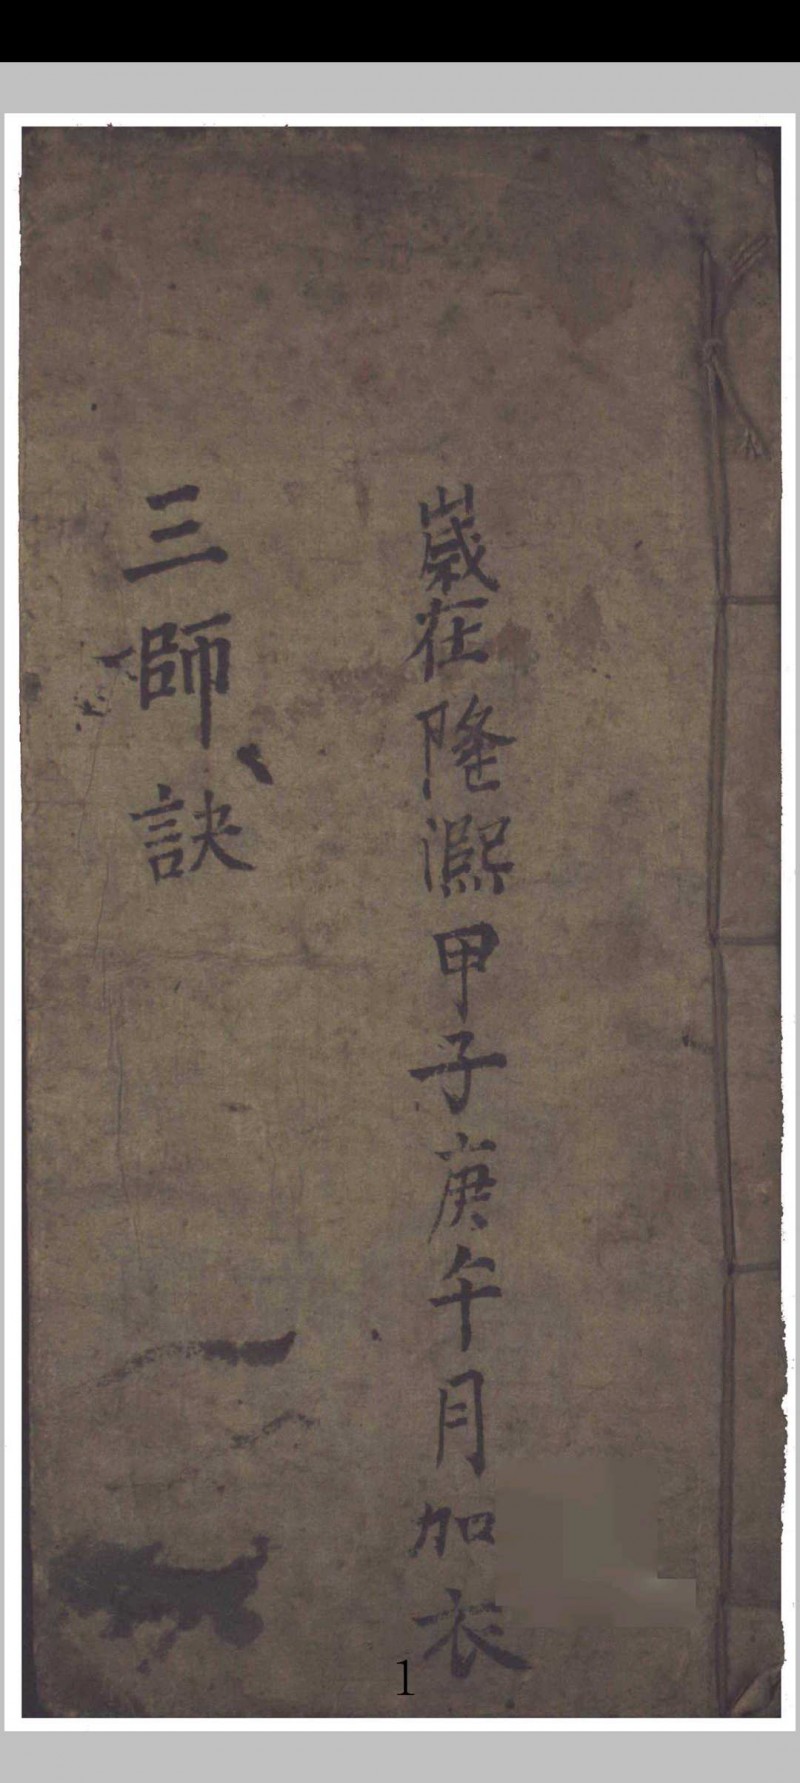 歲在隆熙甲子庚午月加衣
三師訣
1